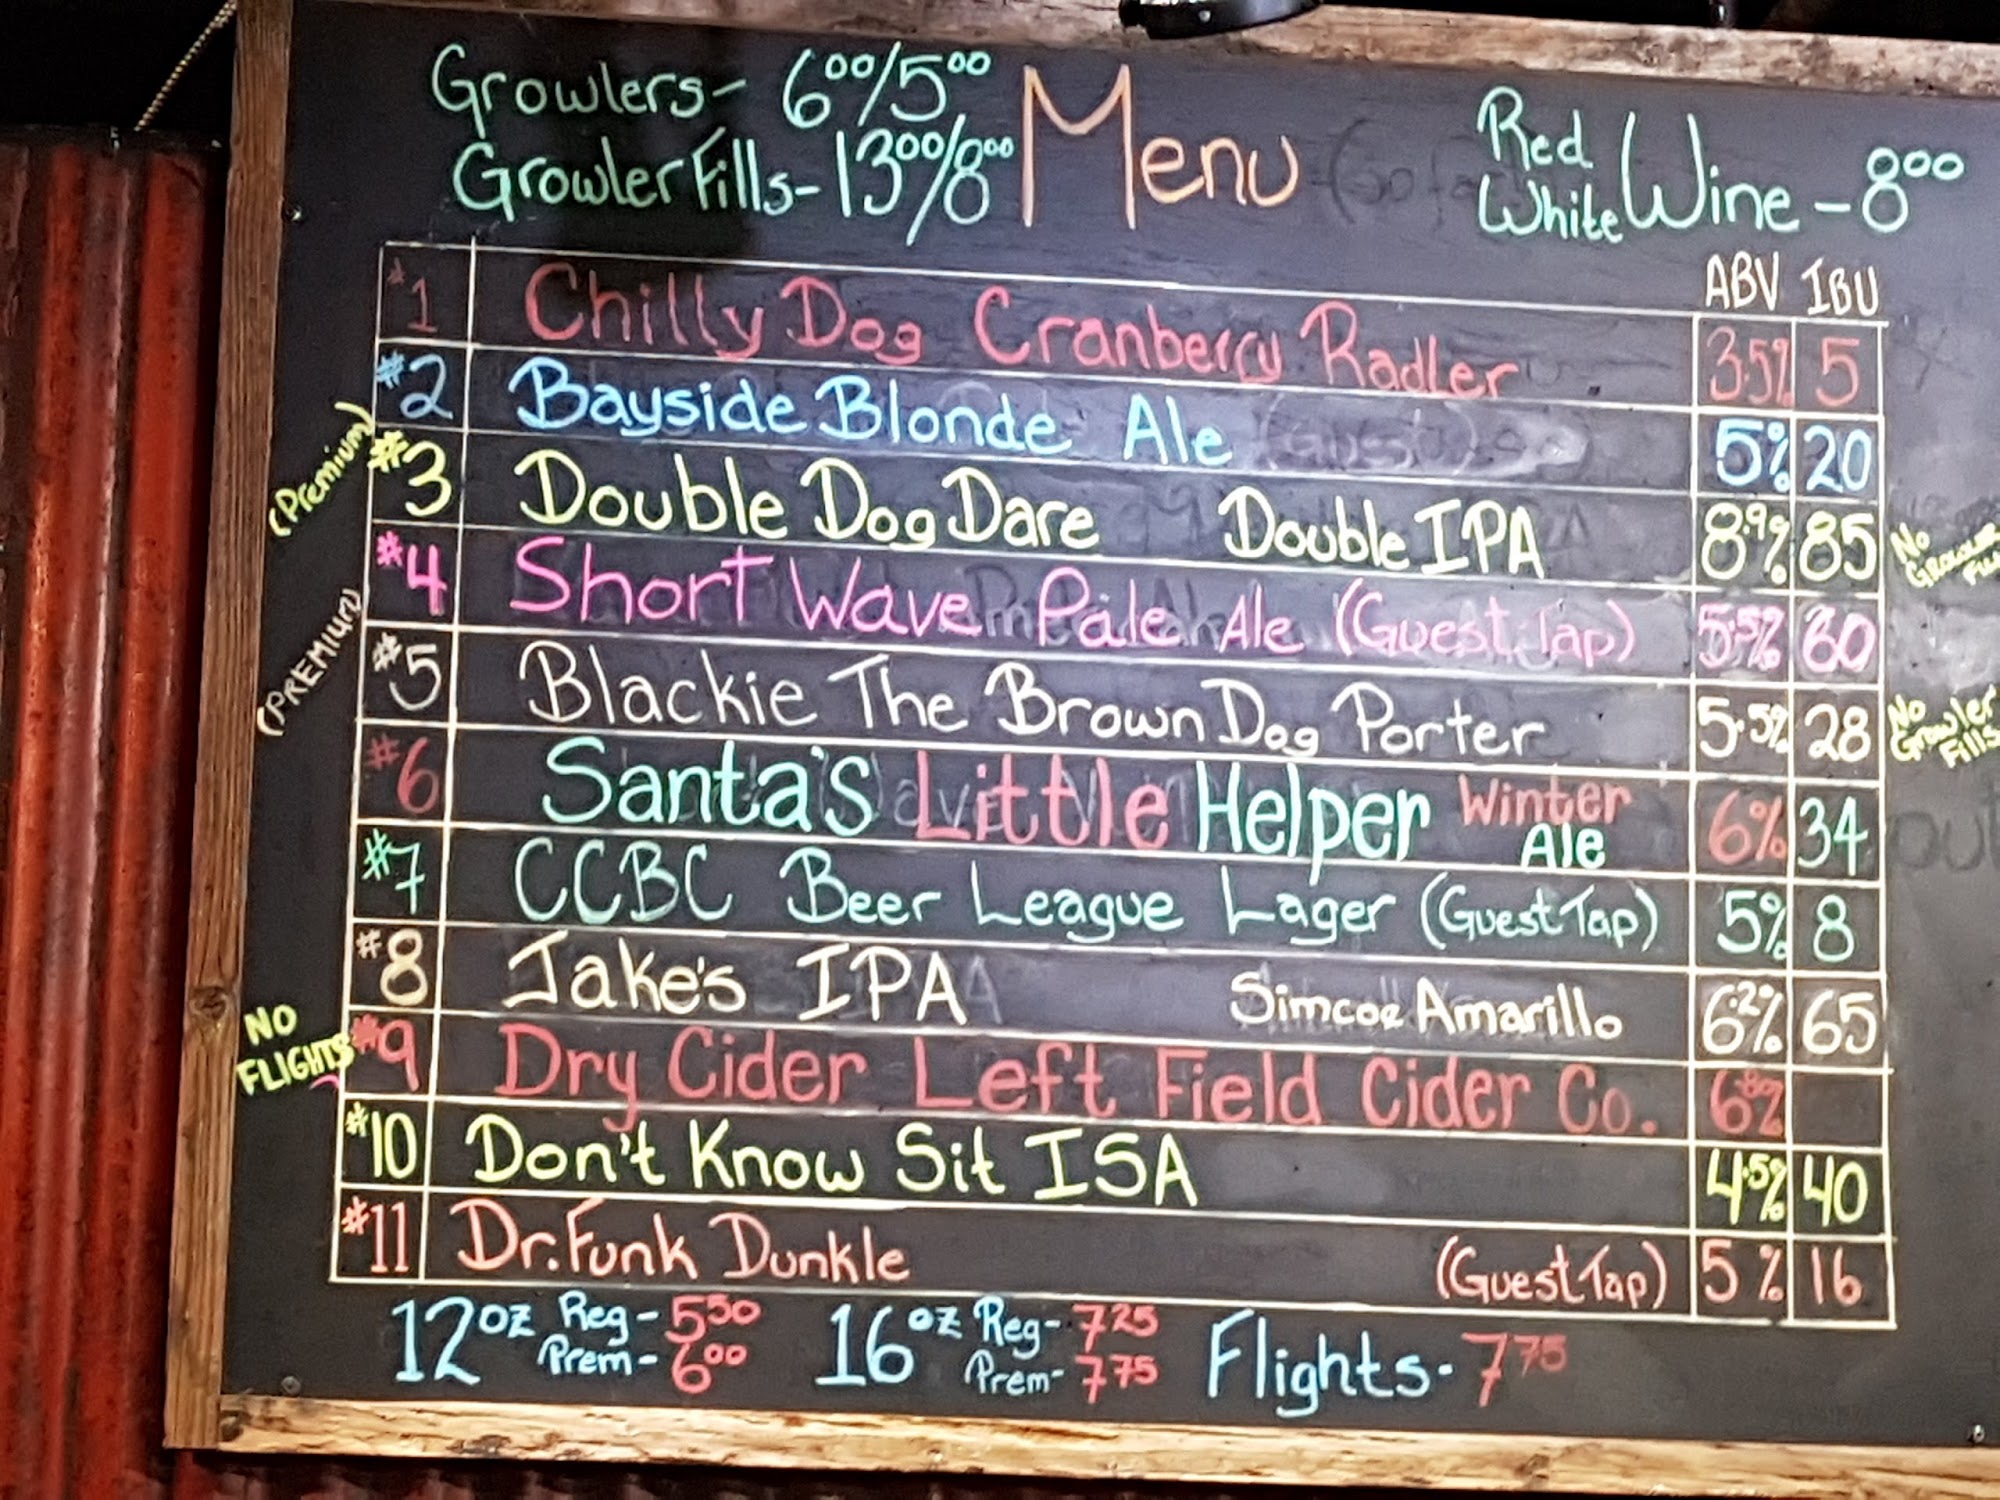 Growlers- 6⁰⁰/5⁰⁰
Growler Fills- 13⁰⁰/8⁰⁰
Menu
Red
White Wine - 8⁰⁰
ABV IBU
#1 Chilly Dog Cranberry Radler 3.5% 5
#2 Bayside Blonde Ale 5% 20
(Premium) #3 Double Dog Dare Double IPA 8.9% 85 No Growler Fills
#4 Short Wave Pale Ale (Guest Tap) 5.5% 60
(PREMIUM) #5 Blackie The Brown Dog Porter 5.5% 28 No Growler Fills
#6 Santa's Little Helper Winter Ale 6% 34
#7 CCBC Beer League Lager (Guest Tap) 5% 8
#8 Jake's IPA Simcoe Amarillo 6.2% 65
NO FLIGHTS #9 Dry Cider Left Field Cider Co. 6.8%
#10 Don't Know Sit ISA 4.5% 40
#11 Dr. Funk Dunkle (Guest Tap) 5% 16
12oz Reg- 5⁵⁰ 16oz Reg- 7²⁵ Flights- 7⁷⁵
Prem- 6⁰⁰ Prem- 7⁷⁵